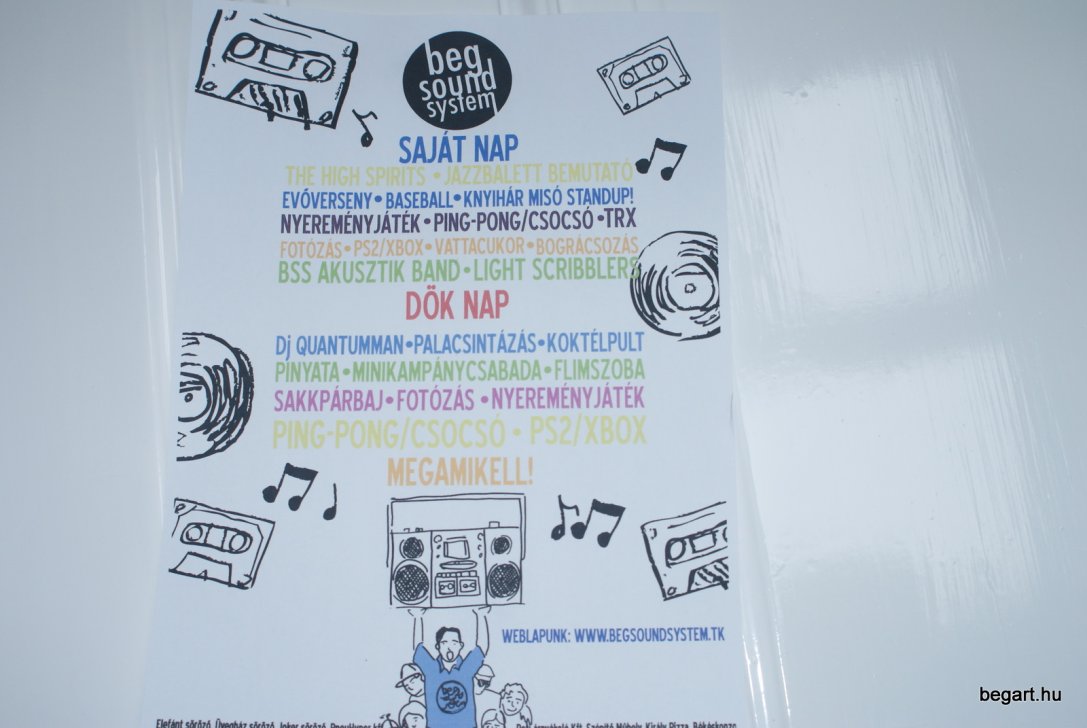 beg
sound
system
SAJÁT NAP
THE HIGH SPIRITS • JAZZBALETT BEMUTATÓ
EVŐVERSENY • BASEBALL • KNYIHÁR MISÓ STANDUP!
NYEREMÉNYJÁTÉK • PING-PONG/CSOCSÓ • TRX
FOTÓZÁS • PS2/XBOX • VATTACUKOR • BOGRÁCSOZÁS
BSS AKUSZTIK BAND • LIGHT SCRIBBLERS
DÖK NAP
Dj QUANTUMMAN • PALACSINTÁZÁS • KOKTÉLPULT
PINYATA • MINIKAMPÁNYCSABADA • FLIMSZOBA
SAKKPÁRBAJ • FOTÓZÁS • NYEREMÉNYJÁTÉK
PING-PONG/CSOCSÓ • PS2/XBOX
MEGAMIKELL!
WEBLAPUNK: WWW.BEGSOUNDSYSTEM.TK
Elefánt söröző, Üvegház söröző, Joker söröző
Szépítő Műhely, Király Pizza
begart.hu